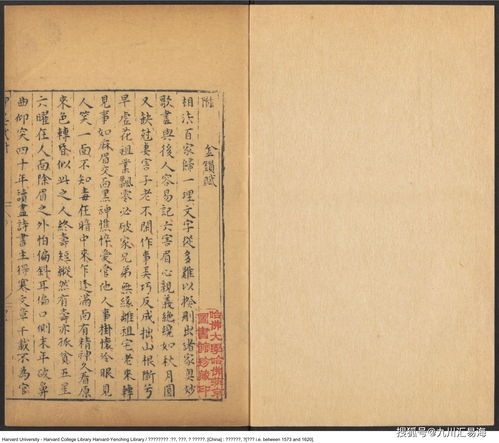 附
金鎖賦
相法百家歸一理文字從多難以揆刪出諸家奥妙
歌盡與後人容易記六害眉心親義絶纔如秋月圓
又缺尅妻害子老不閑作事美巧反成拙山根斷兮
早虚花祖業飄零必破家兄弟無緣離祖宅老來轉
見事如麻眉交面黑神憔悴愛管他人事掛懷冷眼見
人笑一面不知毒在暗中來乍逢滿面有精神久看原
來色轉昏似此之人終壽短縱然有壽亦孤貧五星
六曜在人面除眉之外怕偏斜耳偏口側末年破鼻
曲仰突四十年讀盡詩書生得寒文章千載不為官
哈佛大學哈佛燕京
圖書館珍藏印
Harvard University - Harvard College Library Harvard-Yenching Library / ???????? ??, ???, ? ?????. [China] : ??????, ?[??? i.e. between 1573 and 1620].
搜狐号@九川汇易海